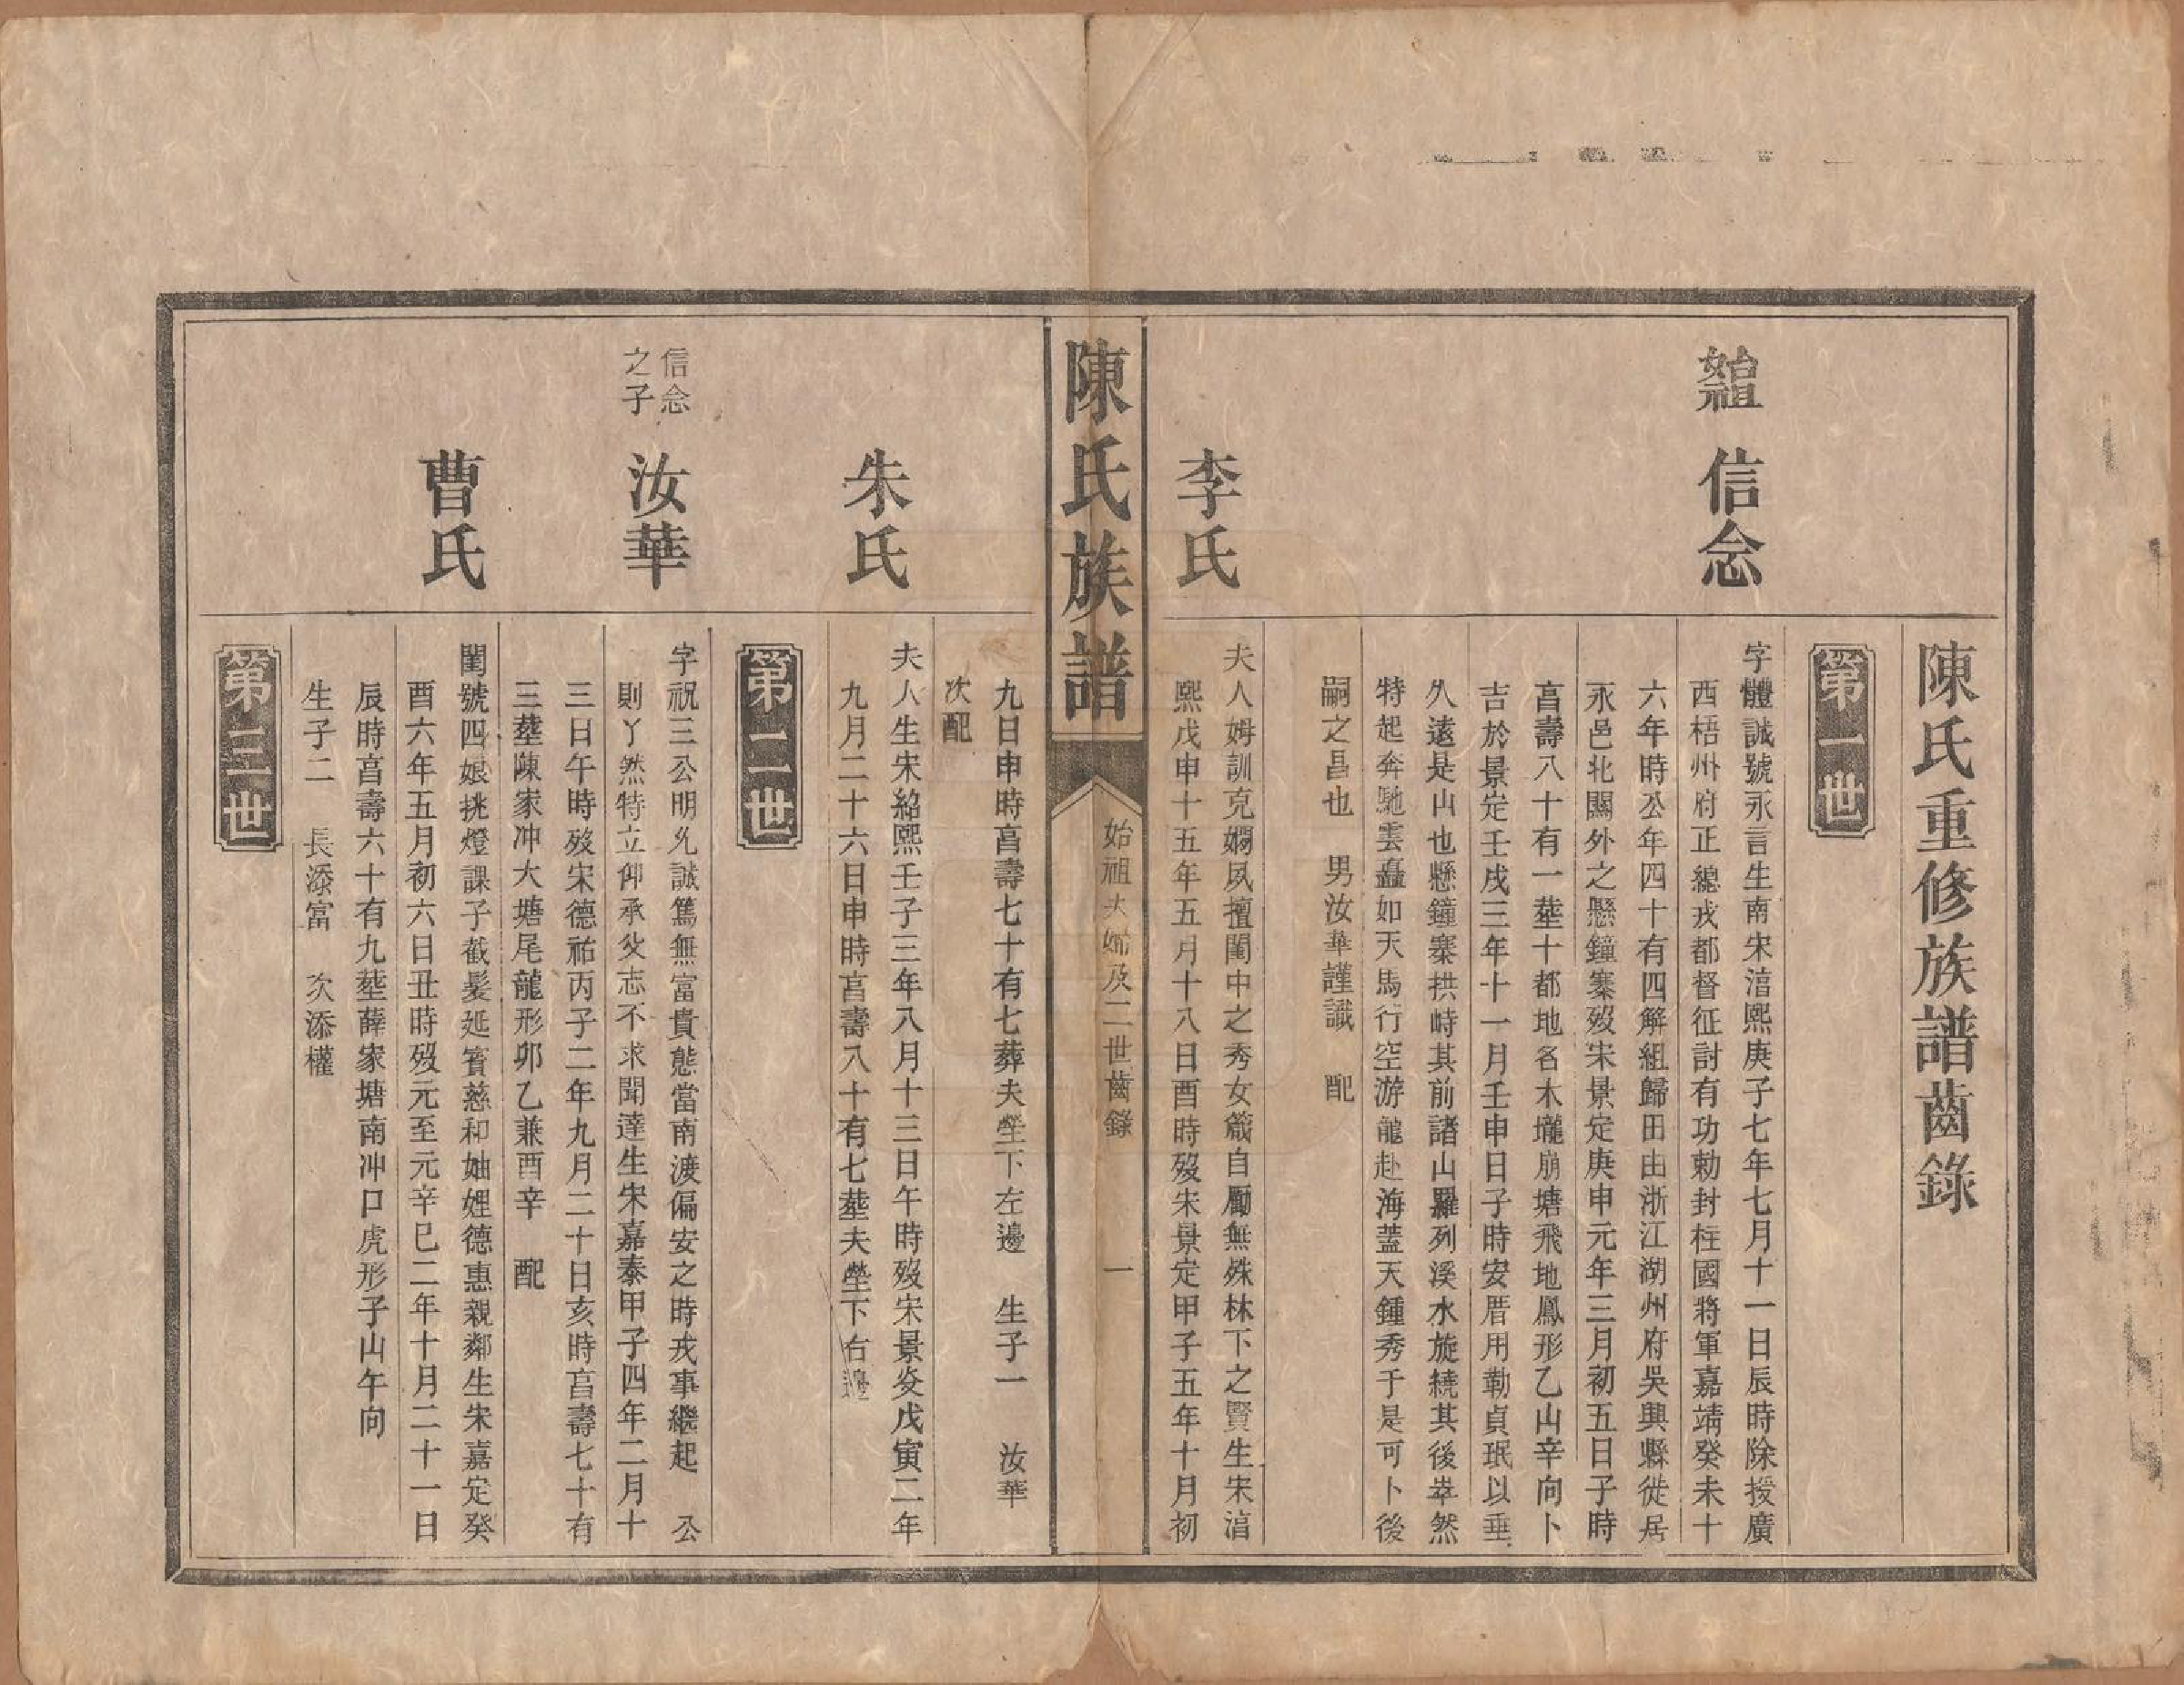 陳氏重修族譜齒錄
第一世
始祖 信念
字體誠號永言生南宋湻熙庚子七年七月十一日辰時除授廣
西梧州府正總戎都督征討有功勅封柱國將軍嘉靖癸未十
六年時公年四十有四解組歸田由浙江湖州府吳興縣徙居
永邑北關外之懸鐘寨歿宋景定庚申元年三月初五日子時
享壽八十有一塟十都地名木壠崩塘飛地鳳形乙山辛向卜
吉於景定壬戌三年十一月壬申日子時安厝用勒貞珉以垂
久遠是山也懸鐘寨拱峙其前諸山羅列溪水旋繞其後崒然
特起奔馳雲矗如天馬行空游龍赴海蓋天鍾秀于是可卜後
嗣之昌也 男汝華謹識 配
李氏
夫人姆訓克嫻夙擅閨中之秀女箴自勵無殊林下之賢生宋湻
熙戊申十五年五月十八日酉時歿宋景定甲子五年十月初
陳氏族譜
始祖夫婦及二世齒錄 一
九日申時享壽七十有七葬夫塋下左邊 生子一 汝華
次配
朱氏
夫人生宋紹熙壬子三年八月十三日午時歿宋景炎戊寅二年
九月二十六日申時享壽八十有七塟夫塋下右邊
第二世
信念
之子
汝華
字祝三公明允誠篤無富貴態當南渡偏安之時戎事繼起 公
則丫然特立仰承父志不求聞達生宋嘉泰甲子四年二月十
三日午時歿宋德祐丙子二年九月二十日亥時享壽七十有
三塟陳家冲大塘尾龍形卯乙兼酉辛 配
曹氏
閨號四娘挑燈課子截髮延賓慈和妯娌德惠親鄰生宋嘉定癸
酉六年五月初六日丑時歿元至元辛巳二年十月二十一日
辰時享壽六十有九塟薛家塘南冲口虎形子山午向
生子二 長添富 次添權
第三世